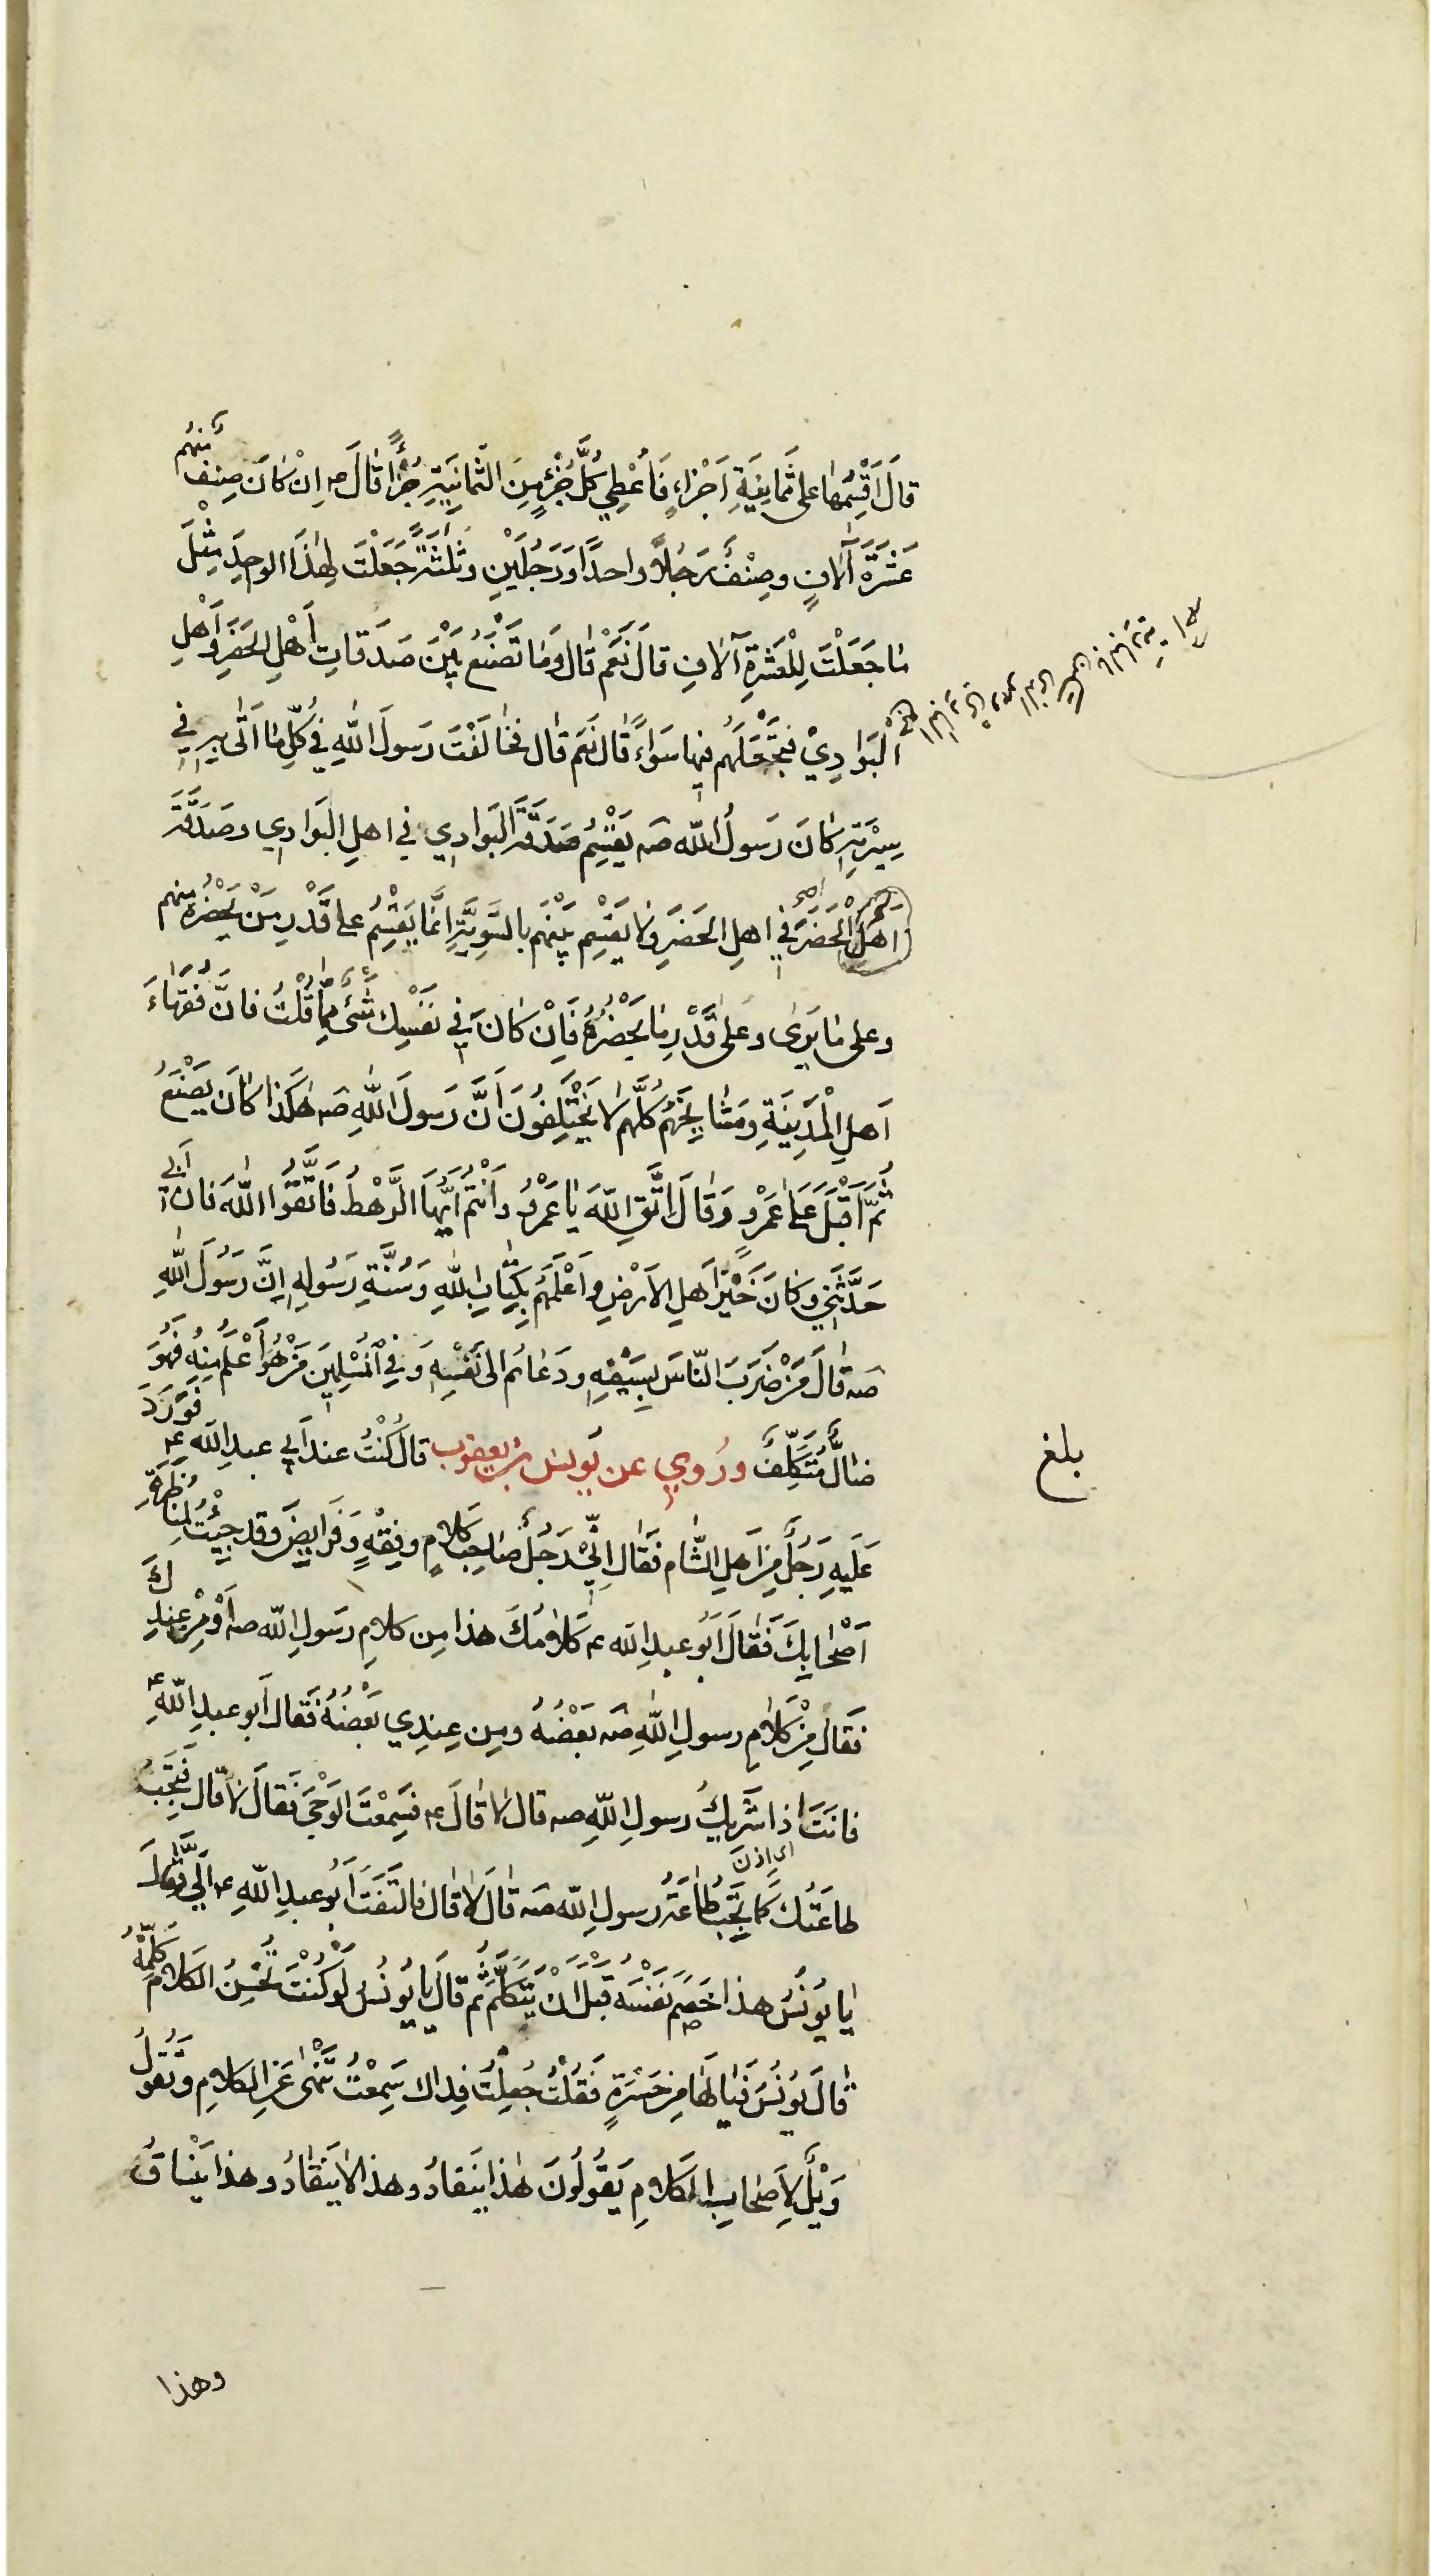 قَالَ اَقْسِمُهَا عَلَى ثَمَانِيَةِ اَجْزَاءٍ فَاُعْطِي كُلَّ جُزْءٍ مِنَ الثَّمَانِيَةِ جُزْءًا قَالَ ع اِنْ كَانَ صِنْفٌ مِنْهُم
عَشَرَةَ آلَافٍ وَصِنْفٌ رَجُلًا وَاحِدًا وَرَجُلَيْنِ وَثَلٰثَةً جَعَلْتَ لِهٰذَا الْوَاحِدِ مِثْلَ
مَا جَعَلْتَ لِلْعَشَرَةِ آلَافِ قَالَ نَعَمْ قَالَ وَمَا تَصْنَعُ بَيْنَ صَدَقَاتِ أَهْلِ الْحَضَرِ وَأَهْلِ
الْبَوَادِيْ فَتَجْعَلُهُم فِيهَا سَوَاءً قَالَ نَعَم قَال فَخَالَفْتَ رَسُولَ اللهِ فِي كُلِّ مَا اَتٰى بِهِ فِي
سِيْرَتِهِ كَانَ رَسُولُ اللهِ صَ يَقْسِمُ صَدَقَةَ الْبَوَادِي فِي اهلِ الْبَوَادِي وَصَدَقَةَ
اهل الْحَضَرَ فِي اهلِ الْحَضَرِ وَلَا يَقْسِم بَيْنَهُم بِالسَّوِيَّةِ اِنَّمَا يَقْسِمُ عَلَى قَدْرِ مَنْ يَحْضُرُهُ مِنْهُم
وَعَلَى مَا يَرَى وَعَلَى قَدْرِ مَا يَحْضُرُهُ فَاِنْ كَانَ فِي نَفْسِكَ شَيْءٌ مِمَّا قُلْتُ فَانَّ فُقَهَاءَ
اَهلِ الْمَدِينَةِ وَمَشَايِخَهُم كُلَّهُم لَا يَخْتَلِفُونَ اَنَّ رَسُولَ اللهِ صَ هٰكَذَا كَانَ يَصْنَعُ
ثُمَّ اَقْبَلَ عَلَى عَمْرٍو وَقَالَ اتَّقِ اللهَ يَا عَمْرُو وَاَنْتُم اَيُّهَا الرَّهْطُ فَاتَّقُوا اللهَ فَانَّ اَبِي
حَدَّثَنِي وَكَانَ خَيْرَ اَهلِ الْاَرْضِ وَاَعْلَمَهُم بِكِتَابِ اللهِ وَسُنَّةِ رَسُولِهِ اِنَّ رَسُولَ اللهِ
صَ قَالَ مَنْ ضَرَبَ النَّاسَ بِسَيْفِهِ وَدَعَاهُم اِلَى نَفْسِهِ وَفِي الْمُسْلِمِينَ مَنْ هُوَ اَعْلَمُ مِنْهُ فَهُوَ
ضَالٌّ مُتَكَلِّفٌ وَرُوِي عَن يُونسَ بن يعقوب قَالَ كُنْتُ عند اَبِي عبدِ اللهِ ع فَوَرَدَ
عَلَيهِ رَجُلٌ مِنْ اَهلِ الشَّامِ فَقَالَ اِنِّيْ رَجُلٌ صَاحِبُ كَلَامٍ وَفِقْهٍ وَفَرَايِضَ وَقَد جِئْتُ لِمُنَاظَرَةِ
اَصْحَابِكَ فَقَالَ اَبُو عبدِ اللهِ ع كَلَامُكَ هٰذَا مِن كَلَامِ رَسُولِ اللهِ صَ اَوْ مِنْ عِنْدِكَ
فَقَالَ مِنْ كَلَامِ رسولِ اللهِ صَ بَعْضُهُ وَمِن عِنْدِي بَعْضُهُ فَقَال اَبُو عبدِ اللهِ ع
فَانَتَ اِذًا شَرِيكُ رَسُولِ اللهِ صَ قَال لَا قَالَ ع فَسَمِعْتَ الْوَحْيَ فَقَالَ لَا قَال فَتَجِبُ
اى اذن
طَاعَتُكَ كَمَا تَجِبُ طَاعَةُ رَسُولِ اللهِ صَ قَالَ لَا قَالَ فَالْتَفَتَ اَبُو عبدِ اللهِ ع اِلَيَّ فَقَالَ
يَا يُونُسُ هٰذَا خَصَمَ نَفْسَهُ قَبْلَ اَنْ يَتَكَلَّمَ ثُمَّ قَالَ يَا يُونُسُ لَوْ كُنْتَ تُحْسِنُ الْكَلَامَ كَلَّمْتَهُ
قَالَ يُونُسُ فَيَا لَهَا مِنْ حَسْرَةٍ فَقُلْتُ جُعِلْتُ فِدَاكَ سَمِعْتُ تَنْهَى عَنِ الْكَلَامِ وَتَقُولُ
وَيْلٌ لِاَصْحَابِ الْكَلَامِ يَقُولُونَ هٰذَا يَنْقَادُ وَهٰذَا لَا يَنْقَادُ وَهٰذَا يَنْسَاقُ
وهذا
بلغ